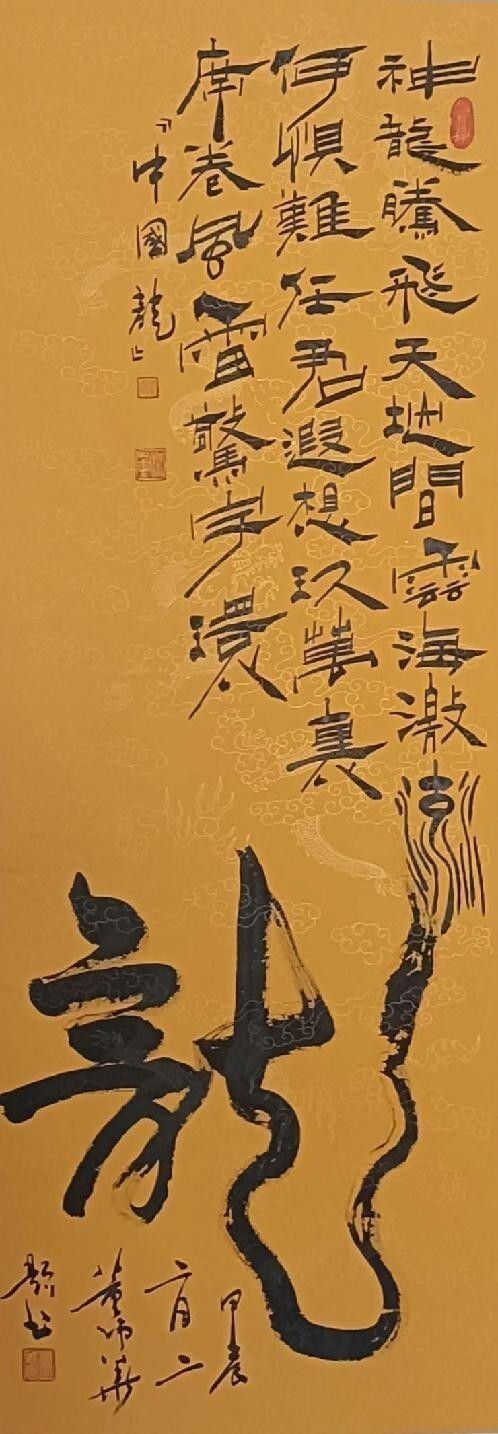 神龍騰飛天地間雲海激
何惧難任君遐想玖萬裏
席卷風雷驚宇環
「中國龍」
龍
甲辰
二月二
董
題書